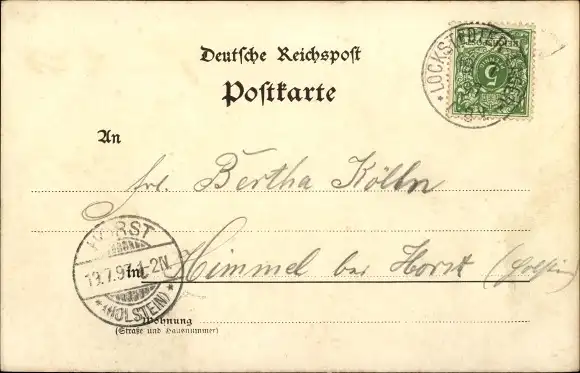 Deutsche Reichspost
Postkarte
LOCKSTEDTER LAGER
5
An
Frl. Bertha Kölln
HORST
19.7.97.1-2N
(HOLSTEIN)
in Himmel bei Horst (Holstein)
Wohnung
(Straße und Hausnummer)